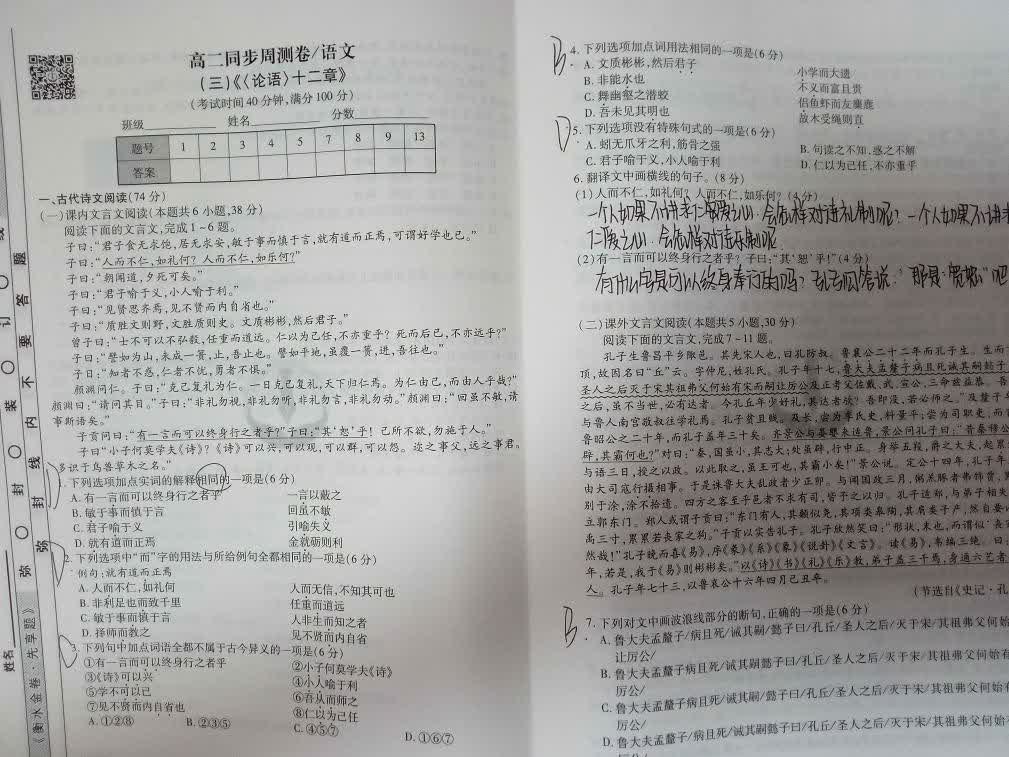 高二同步周测卷/语文
(三)《〈论语〉十二章》
(考试时间40分钟,满分100分)
班级 姓名 分数
题号 1 2 3 4 5 7 8 9 13
答案
一、古代诗文阅读(74分)
(一)课内文言文阅读(本题共6小题,38分)
阅读下面的文言文,完成1~6题。
子曰:“君子食无求饱,居无求安,敏于事而慎于言,就有道而正焉,可谓好学也已。”
子曰:“人而不仁,如礼何?人而不仁,如乐何?”
子曰:“朝闻道,夕死可矣。”
子曰:“君子喻于义,小人喻于利。”
子曰:“见贤思齐焉,见不贤而内自省也。”
子曰:“质胜文则野,文胜质则史。文质彬彬,然后君子。”
曾子曰:“士不可以不弘毅,任重而道远。仁以为己任,不亦重乎?死而后已,不亦远乎?”
子曰:“譬如为山,未成一篑,止,吾止也。譬如平地,虽覆一篑,进,吾往也。”
子曰:“知者不惑,仁者不忧,勇者不惧。”
颜渊问仁。子曰:“克己复礼为仁。一日克己复礼,天下归仁焉。为仁由己,而由人乎哉?”
颜渊曰:“请问其目。”子曰:“非礼勿视,非礼勿听,非礼勿言,非礼勿动。”颜渊曰:“回虽不敏,请
事斯语矣。”
子贡问曰:“有一言而可以终身行之者乎?”子曰:“其‘恕’乎!己所不欲,勿施于人。”
子曰“小子何莫学夫《诗》?《诗》可以兴,可以观,可以群,可以怨。迩之事父,远之事君。
多识于鸟兽草木之名。”
1.下列选项加点实词的解释相同的一项是(6分)
A.有一言而可以终身行之者乎 一言以蔽之
B.敏于事而慎于言 回虽不敏
C.君子喻于义 引喻失义
D.就有道而正焉 金就砺则利
2.下列选项中“而”字的用法与所给例句全都相同的一项是(6分)
例句:就有道而正焉
A.人而不仁,如礼何 人而无信,不知其可也
B.非利足也而致千里 任重而道远
C.敏于事而慎于言 人非生而知之者
D.择师而教之 见不贤而内自省
3.下列句中加点词语全都不属于古今异义的一项是(6分)
①有一言而可以终身行之者乎 ②小子何莫学夫《诗》
③《诗》可以兴 ④小人喻于利
⑤学不可以已 ⑥吾从而师之
⑦见不贤而内自省也 ⑧仁以为己任
A.①②⑧ B.②③⑤ C.④⑤⑦ D.①⑥⑦
弥 封 装 订 线 内 不 要 答 题
姓名
《衡水金卷·先享题》
B
4.下列选项加点词用法相同的一项是(6分)
A.文质彬彬,然后君子 小学而大遗
B.非能水也 不义而富且贵
C.舞幽壑之潜蛟 侣鱼虾而友麋鹿
D.吾未见其明也 故木受绳则直
D
5.下列选项没有特殊句式的一项是(6分)
A.蚓无爪牙之利,筋骨之强 B.句读之不知,惑之不解
C.君子喻于义,小人喻于利 D.仁以为己任,不亦重乎
6.翻译文中画横线的句子。(8分)
(1)人而不仁,如礼何?人而不仁,如乐何?(4分)
一个人如果不讲求仁爱之心,会怎样对待礼制呢?一个人如果不讲求
仁爱之心,会怎样对待乐制呢
(2)有一言而可以终身行之者乎?子曰:“其‘恕’乎!”(4分)
有什么字是可以终身奉行的吗?孔子回答说:“那是“宽恕”吧
(二)课外文言文阅读(本题共5小题,30分)
阅读下面的文言文,完成7~11题。
孔子生鲁昌平乡陬邑。其先宋人也,曰孔防叔。鲁襄公二十二年而孔子生。生而
顶,故因名曰“丘”云。字仲尼,姓孔氏。孔子年十七,鲁大夫孟釐子病且死诫其嗣懿子
圣人之后灭于宋其祖弗父何始有宋而嗣让厉公及正考父佐戴、武、宣公,三命兹益恭。吾
之后,虽不当世,必有达者。今孔丘年少好礼,其达者欤?吾即没,若必师之。”及釐子卒
与鲁人南宫敬叔往学礼焉。孔子贫且贱。及长,尝为季氏史,料量平;尝为司职吏,而
鲁昭公之二十年,而孔子盖年三十矣。齐景公与晏婴来适鲁,景公问孔子曰:“昔秦穆公
辟,其霸何也?”对曰:“秦,国虽小,其志大;处虽辟,行中正。身举五羖,爵之大夫,起累
与语三日,授之以政。以此取之,虽王可也,其霸小矣!”景公说。定公十四年,孔子年
由大司寇行摄相事。于是诛鲁大夫乱政者少正卯。与闻国政三月,粥羔豚者弗饰贾,
别于涂,涂不拾遗。四方之客至乎邑者不求有司,皆予之以归。孔子适郑,与弟子相失
立郭东门。郑人或谓子贡曰:“东门有人,其颡似尧,其项类皋陶,其肩类子产,然自要
禹三寸,累累若丧家之狗。”子贡以实告孔子。孔子欣然笑曰:“形状,末也,而谓似‘丧
然哉!”孔子晚而喜《易》,序《彖》《系》《象》《说卦》《文言》。读《易》,韦编三绝。曰:
年,若是,我于《易》则彬彬矣。”以《诗》《书》《礼》《乐》教,弟子盖三千焉,身通六艺者
人。孔子年七十三,以鲁哀公十六年四月己丑卒。
(节选自《史记·孔
B
7.下列对文中画波浪线部分的断句,正确的一项是(6分)
A.鲁大夫孟釐子/病且死/诫其嗣/懿子曰/孔丘/圣人之后/灭于宋/其祖弗父何始
让厉公/
B.鲁大夫孟釐子病且死/诫其嗣懿子曰/孔丘/圣人之后/灭于宋/其祖弗父何始有
厉公/
C.鲁大夫孟釐子病且死/诫其嗣/懿子曰/孔丘/圣人之后/灭于宋/其祖弗父何始有
厉公/
D.鲁大夫孟釐子/病且死/诫其嗣懿子曰/孔丘/圣人之后/灭于宋/其祖弗父何始